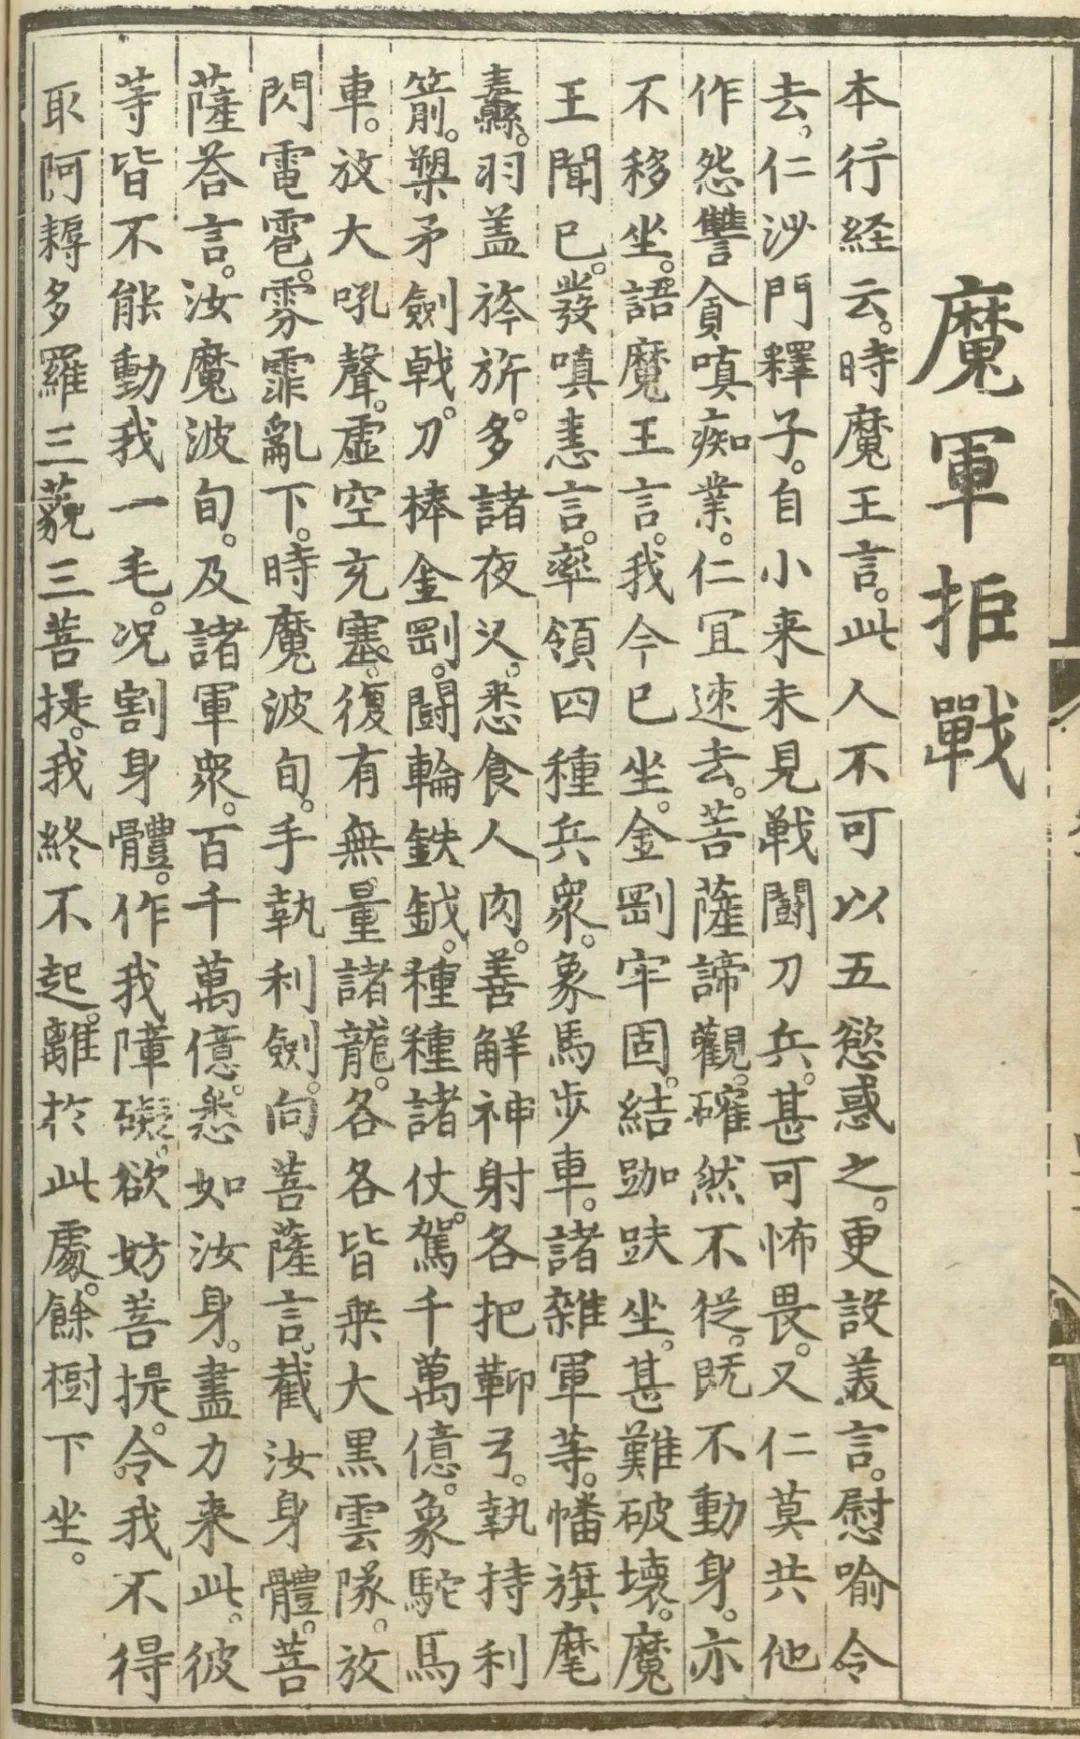 魔軍拒戰
本行経云。時魔王言。此人不可以五慾惑之。更設羙言。慰喻令
去。仁沙門釋子。自小来未見戦鬪刀兵。甚可怖畏。又仁莫共他
作怨讐貪嗔痴業。仁冝速去。菩薩諦觀。確然不従。既不動身。亦
不移坐。語魔王言。我今已坐。金剛牢固。結跏趺坐。甚難破壞。魔
王聞已。發嗔恚言。率領四種兵衆。象馬步車。諸雜軍等。幡旗麾
纛。羽盖旍旂。多諸夜叉。悉食人肉。善解神射各把鞆弓。執持利
箭。槊矛劍戟。刀棒金剛。鬪輪鉄鉞。種種諸仗。駕千萬億。象駝馬
車。放大吼聲。虛空充塞。復有無量諸龍。各各皆乗大黒雲隊。放
閃電雹。雰霏亂下。時魔波旬。手執利劍。向菩薩言。截汝身體。菩
薩荅言。汝魔波旬。及諸軍衆。百千萬億。悉如汝身。盡力来此。彼
等皆不能動我一毛。况割身體。作我障礙。欲妨菩提。令我不得
取阿耨多羅三藐三菩提。我終不起。離於此處。餘樹下坐。